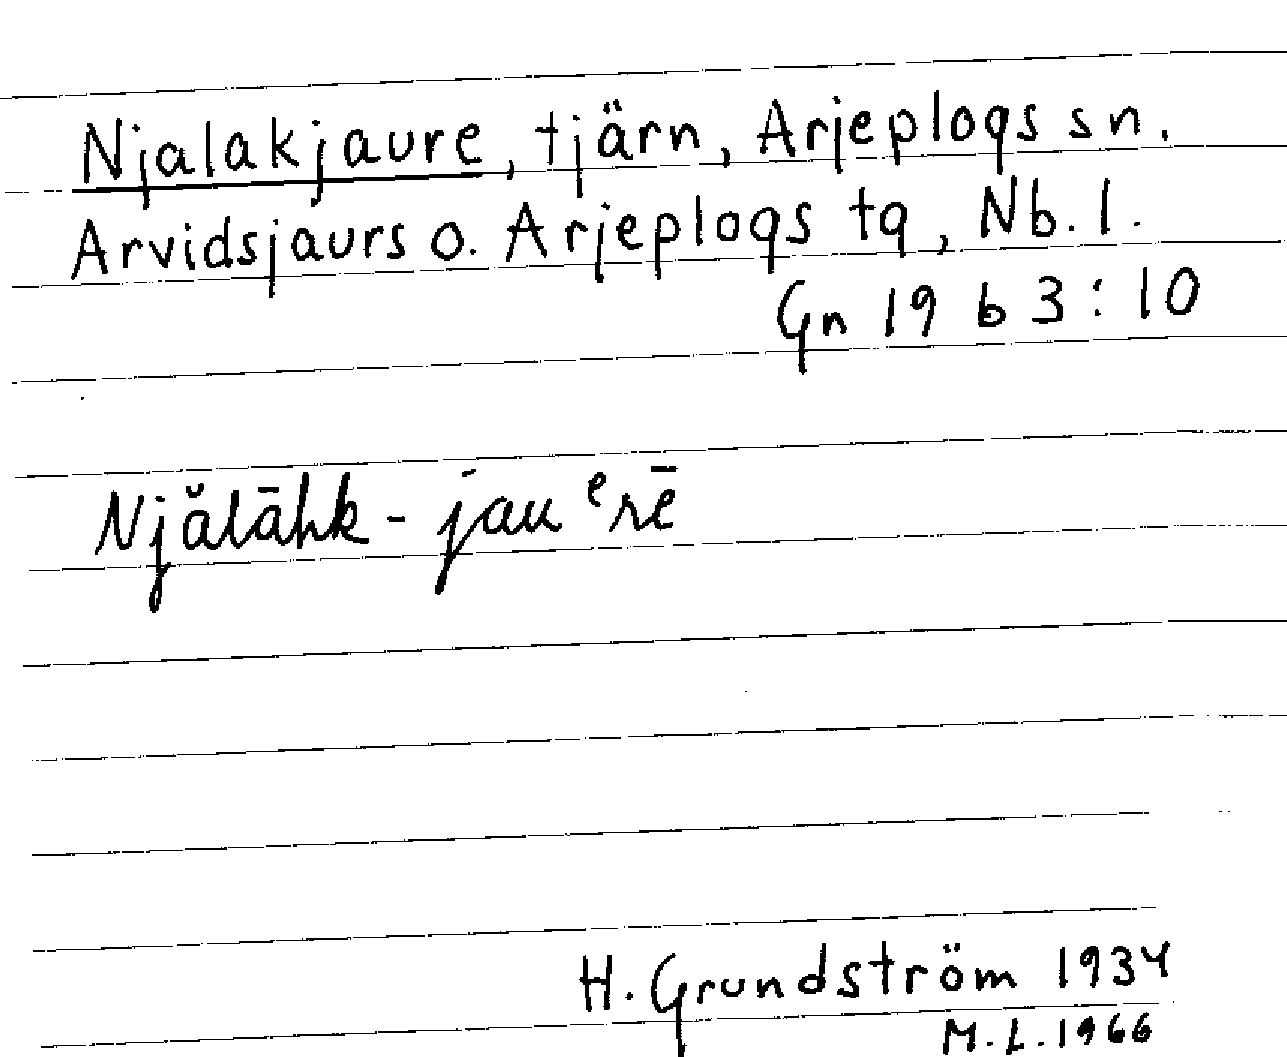 Njalakjaure, tjärn, Arjeplogs sn.
Arvidsjaurs o. Arjeplogs tg, Nb. l.
Gn 19 b 3:10
Njălāhk-jauᵉrē
H. Grundström 1934
M.L. 1966